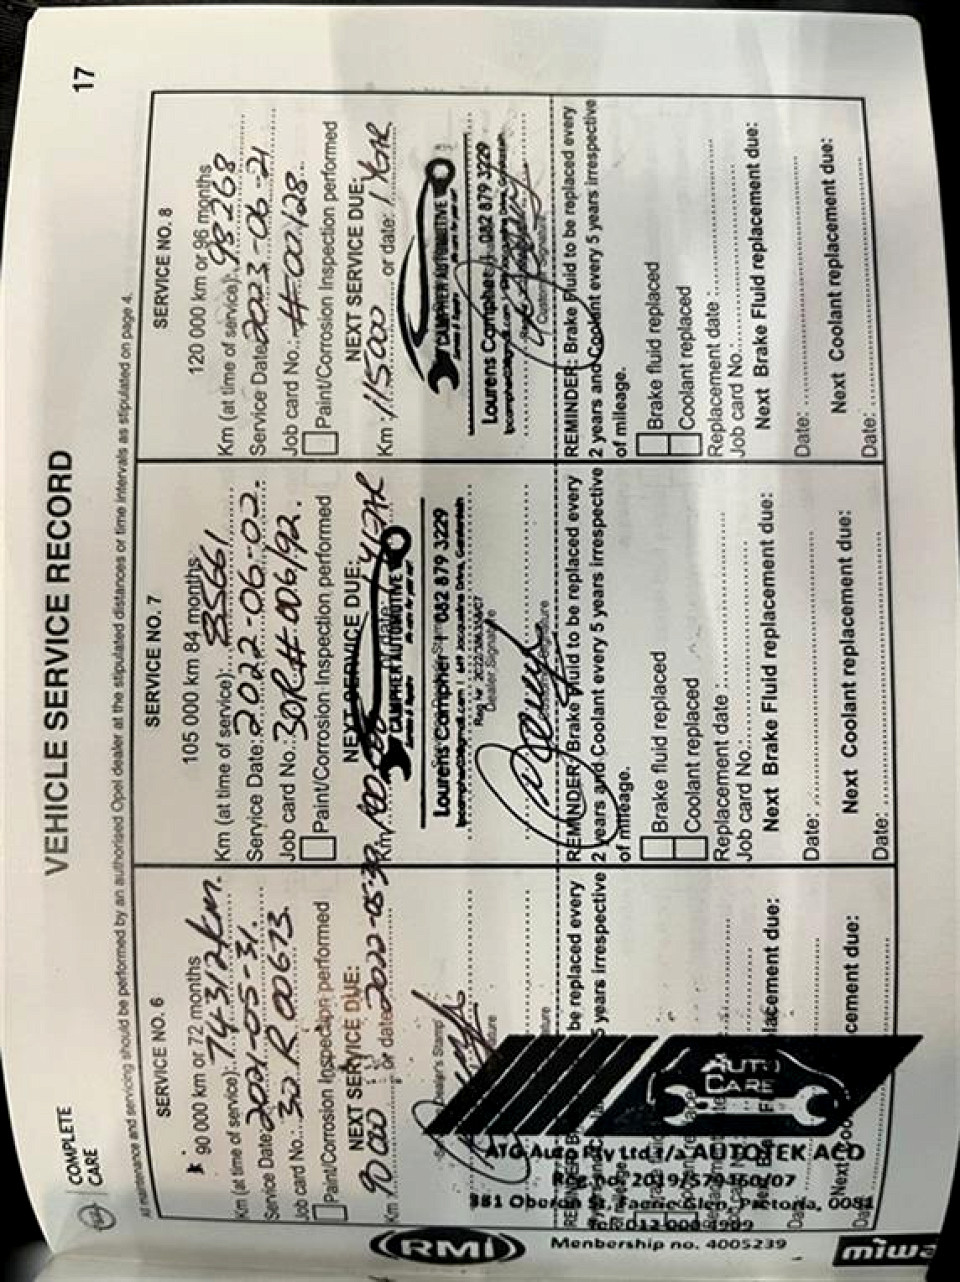 COMPLETE
CARE
VEHICLE SERVICE RECORD
17
All maintenance and servicing should be performed by an authorised Opel dealer at the stipulated distances or time intervals as stipulated on page 4.
SERVICE NO. 6
90 000 km or 72 months
Km (at time of service): 74312km.
Service Date: 2021-05-31.
Job card No.: 32 R 00673.
Paint/Corrosion Inspection performed
NEXT SERVICE DUE:
Km 90 000 or date: 2022-05-30
Dealer's Stamp
ATG Auto Pty Ltd t/a AUTOTEK ACD
Reg no: 2019/579460/07
381 Oberon St, Faerie Glen, Pretoria, 0081
Tel: 012 000 4909
Membership no. 4005239
RMI
miwa
AUTO
CARE
be replaced every
5 years irrespective
lacement due:
cement due:
SERVICE NO. 7
105 000 km 84 months
Km (at time of service): 85661
Service Date: 2022-06-02.
Job card No.: 30R#006192.
Paint/Corrosion Inspection performed
NEXT SERVICE DUE:
Km 100 000
CAMPHER AUTOMOTIVE
Lourens Campher | 082 879 3229
Dealer Signature
REMINDER: Brake Fluid to be replaced every
2 years and Coolant every 5 years irrespective
of mileage.
Brake fluid replaced
Coolant replaced
Replacement date :
Job card No.:
Next Brake Fluid replacement due:
Date:
Next Coolant replacement due:
Date:
SERVICE NO. 8
120 000 km or 96 months
Km (at time of service): 98268
Service Date: 2023-06-21
Job card No.: #-007128
Paint/Corrosion Inspection performed
NEXT SERVICE DUE:
Km 115000 or date: 1 YEAR
CAMPHER AUTOMOTIVE
Lourens Campher | 082 879 3229
REMINDER: Brake Fluid to be replaced every
2 years and Coolant every 5 years irrespective
of mileage.
Brake fluid replaced
Coolant replaced
Replacement date :
Job card No.:
Next Brake Fluid replacement due:
Date:
Next Coolant replacement due:
Date: